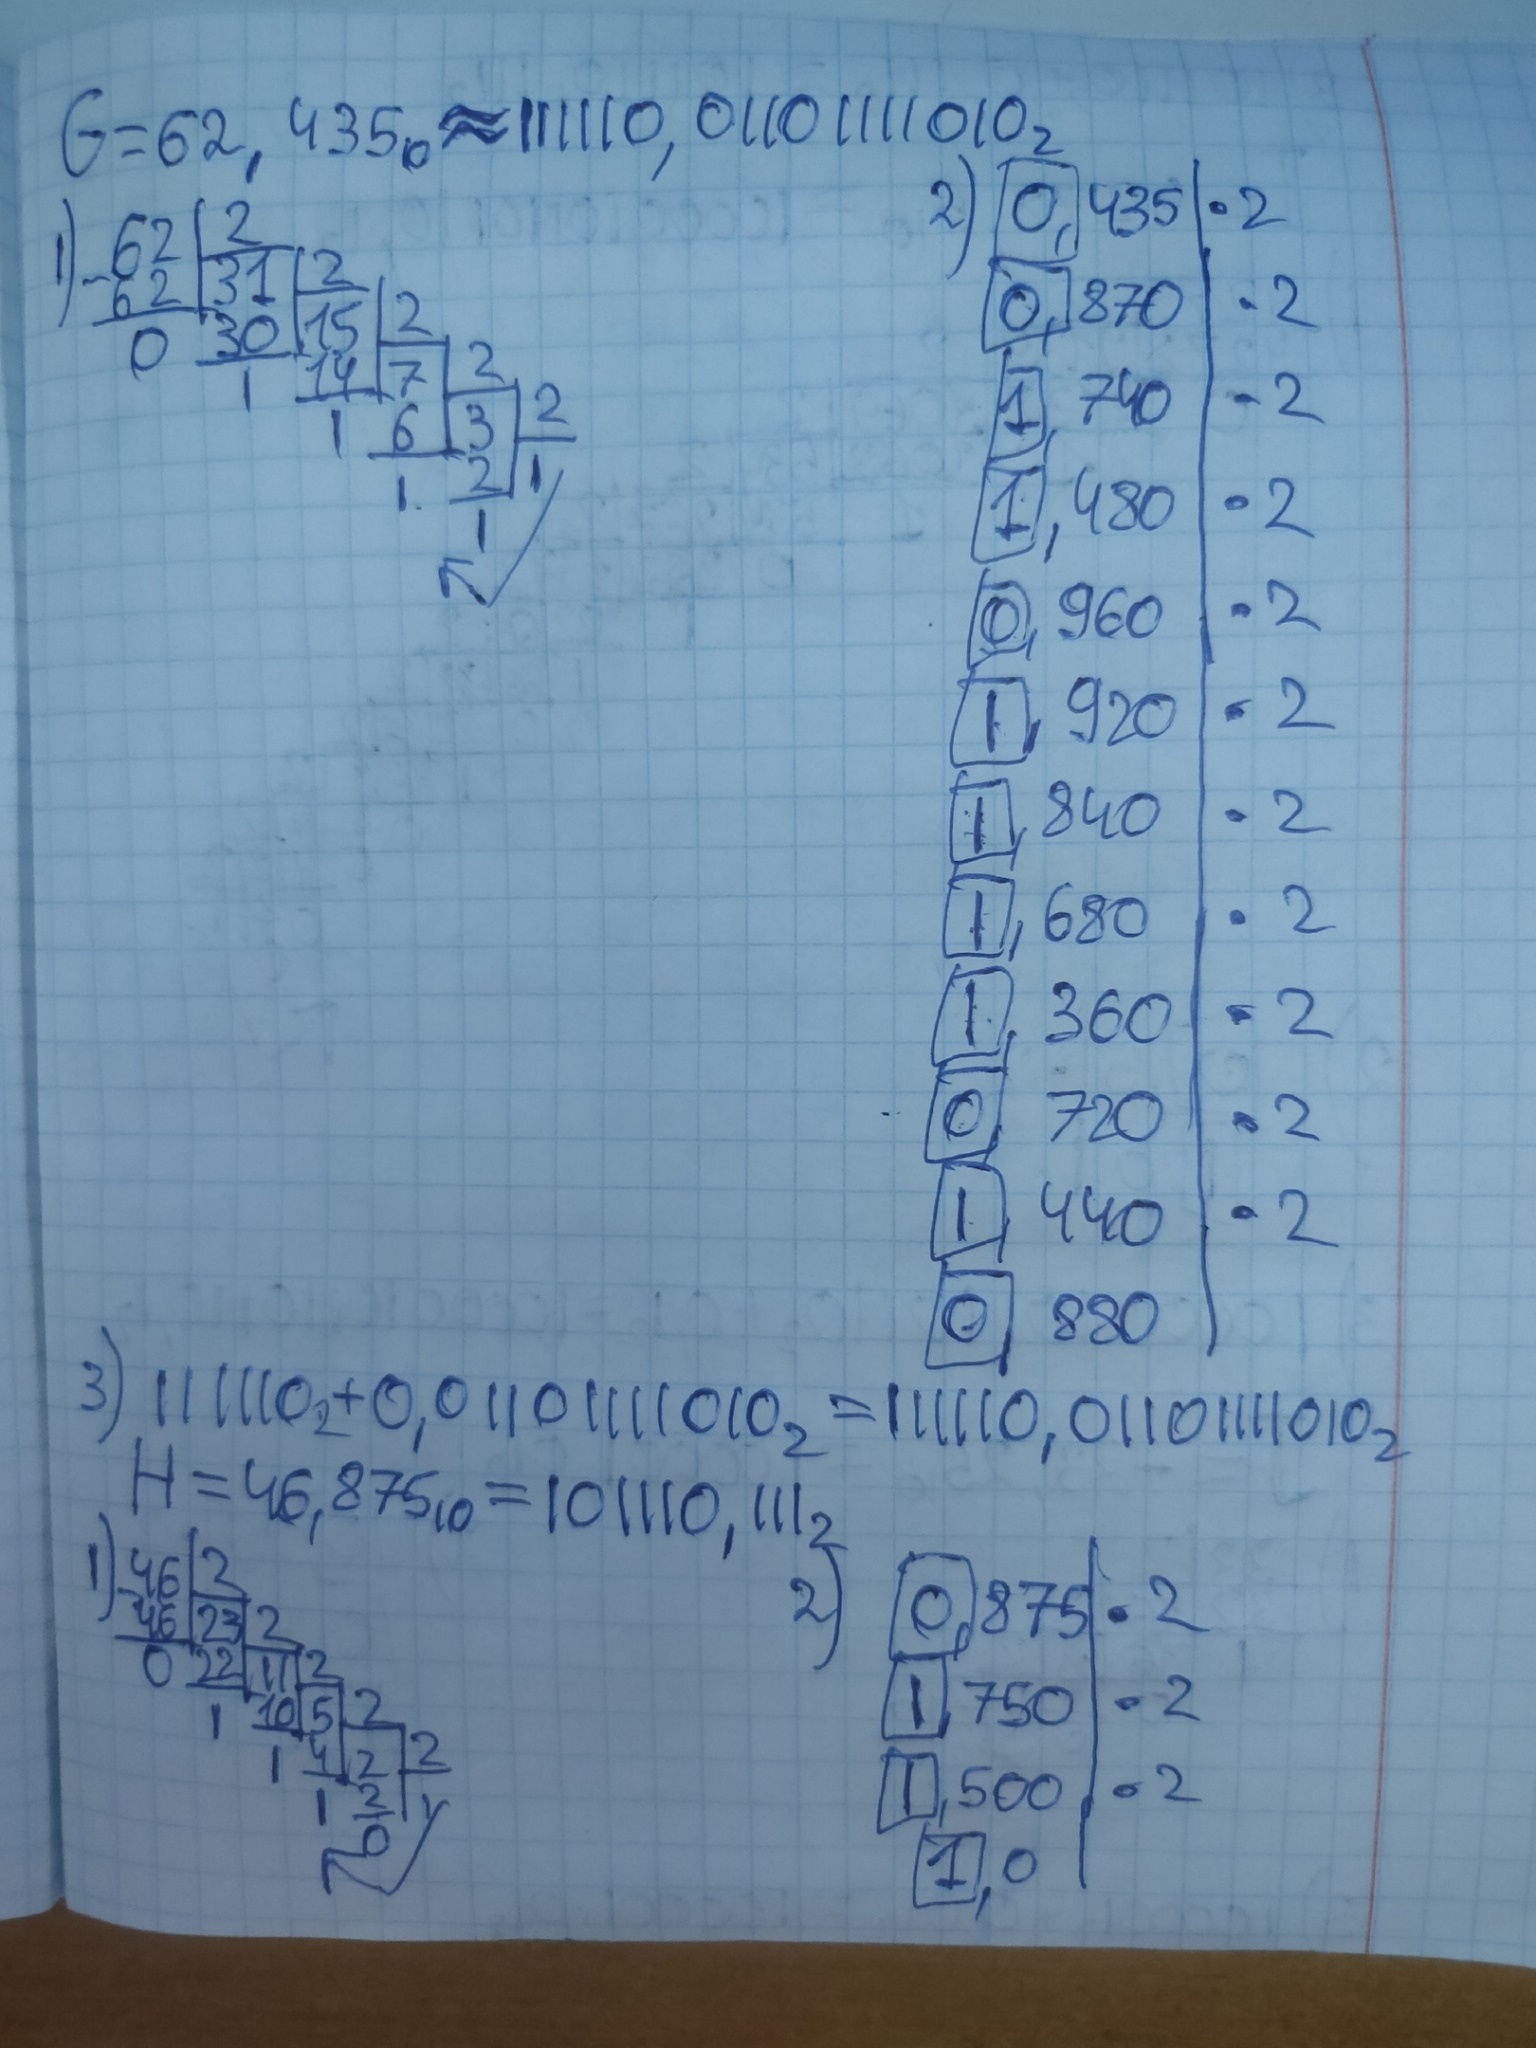 G=62,435₁₀≈111110,01101111010₂
1) -62 | 2
62 | 31 | 2
0 30 | 15 | 2
1 14 | 7 | 2
1 6 | 3 | 2
1 2 | 1
1
2) 0,435 | • 2
0,870 | • 2
1,740 | • 2
1,480 | • 2
0,960 | • 2
1,920 | • 2
1,840 | • 2
1,680 | • 2
1,360 | • 2
0,720 | • 2
1,440 | • 2
0 880
3) 111110₂+0,01101111010₂=111110,01101111010₂
H=46,875₁₀=101110,111₂
1) -46 | 2
46 | 23 | 2
0 22 | 11 | 2
1 10 | 5 | 2
1 4 | 2 | 2
1 2 | 1
0
2) 0,875 | • 2
1,750 | • 2
1,500 | • 2
1,0